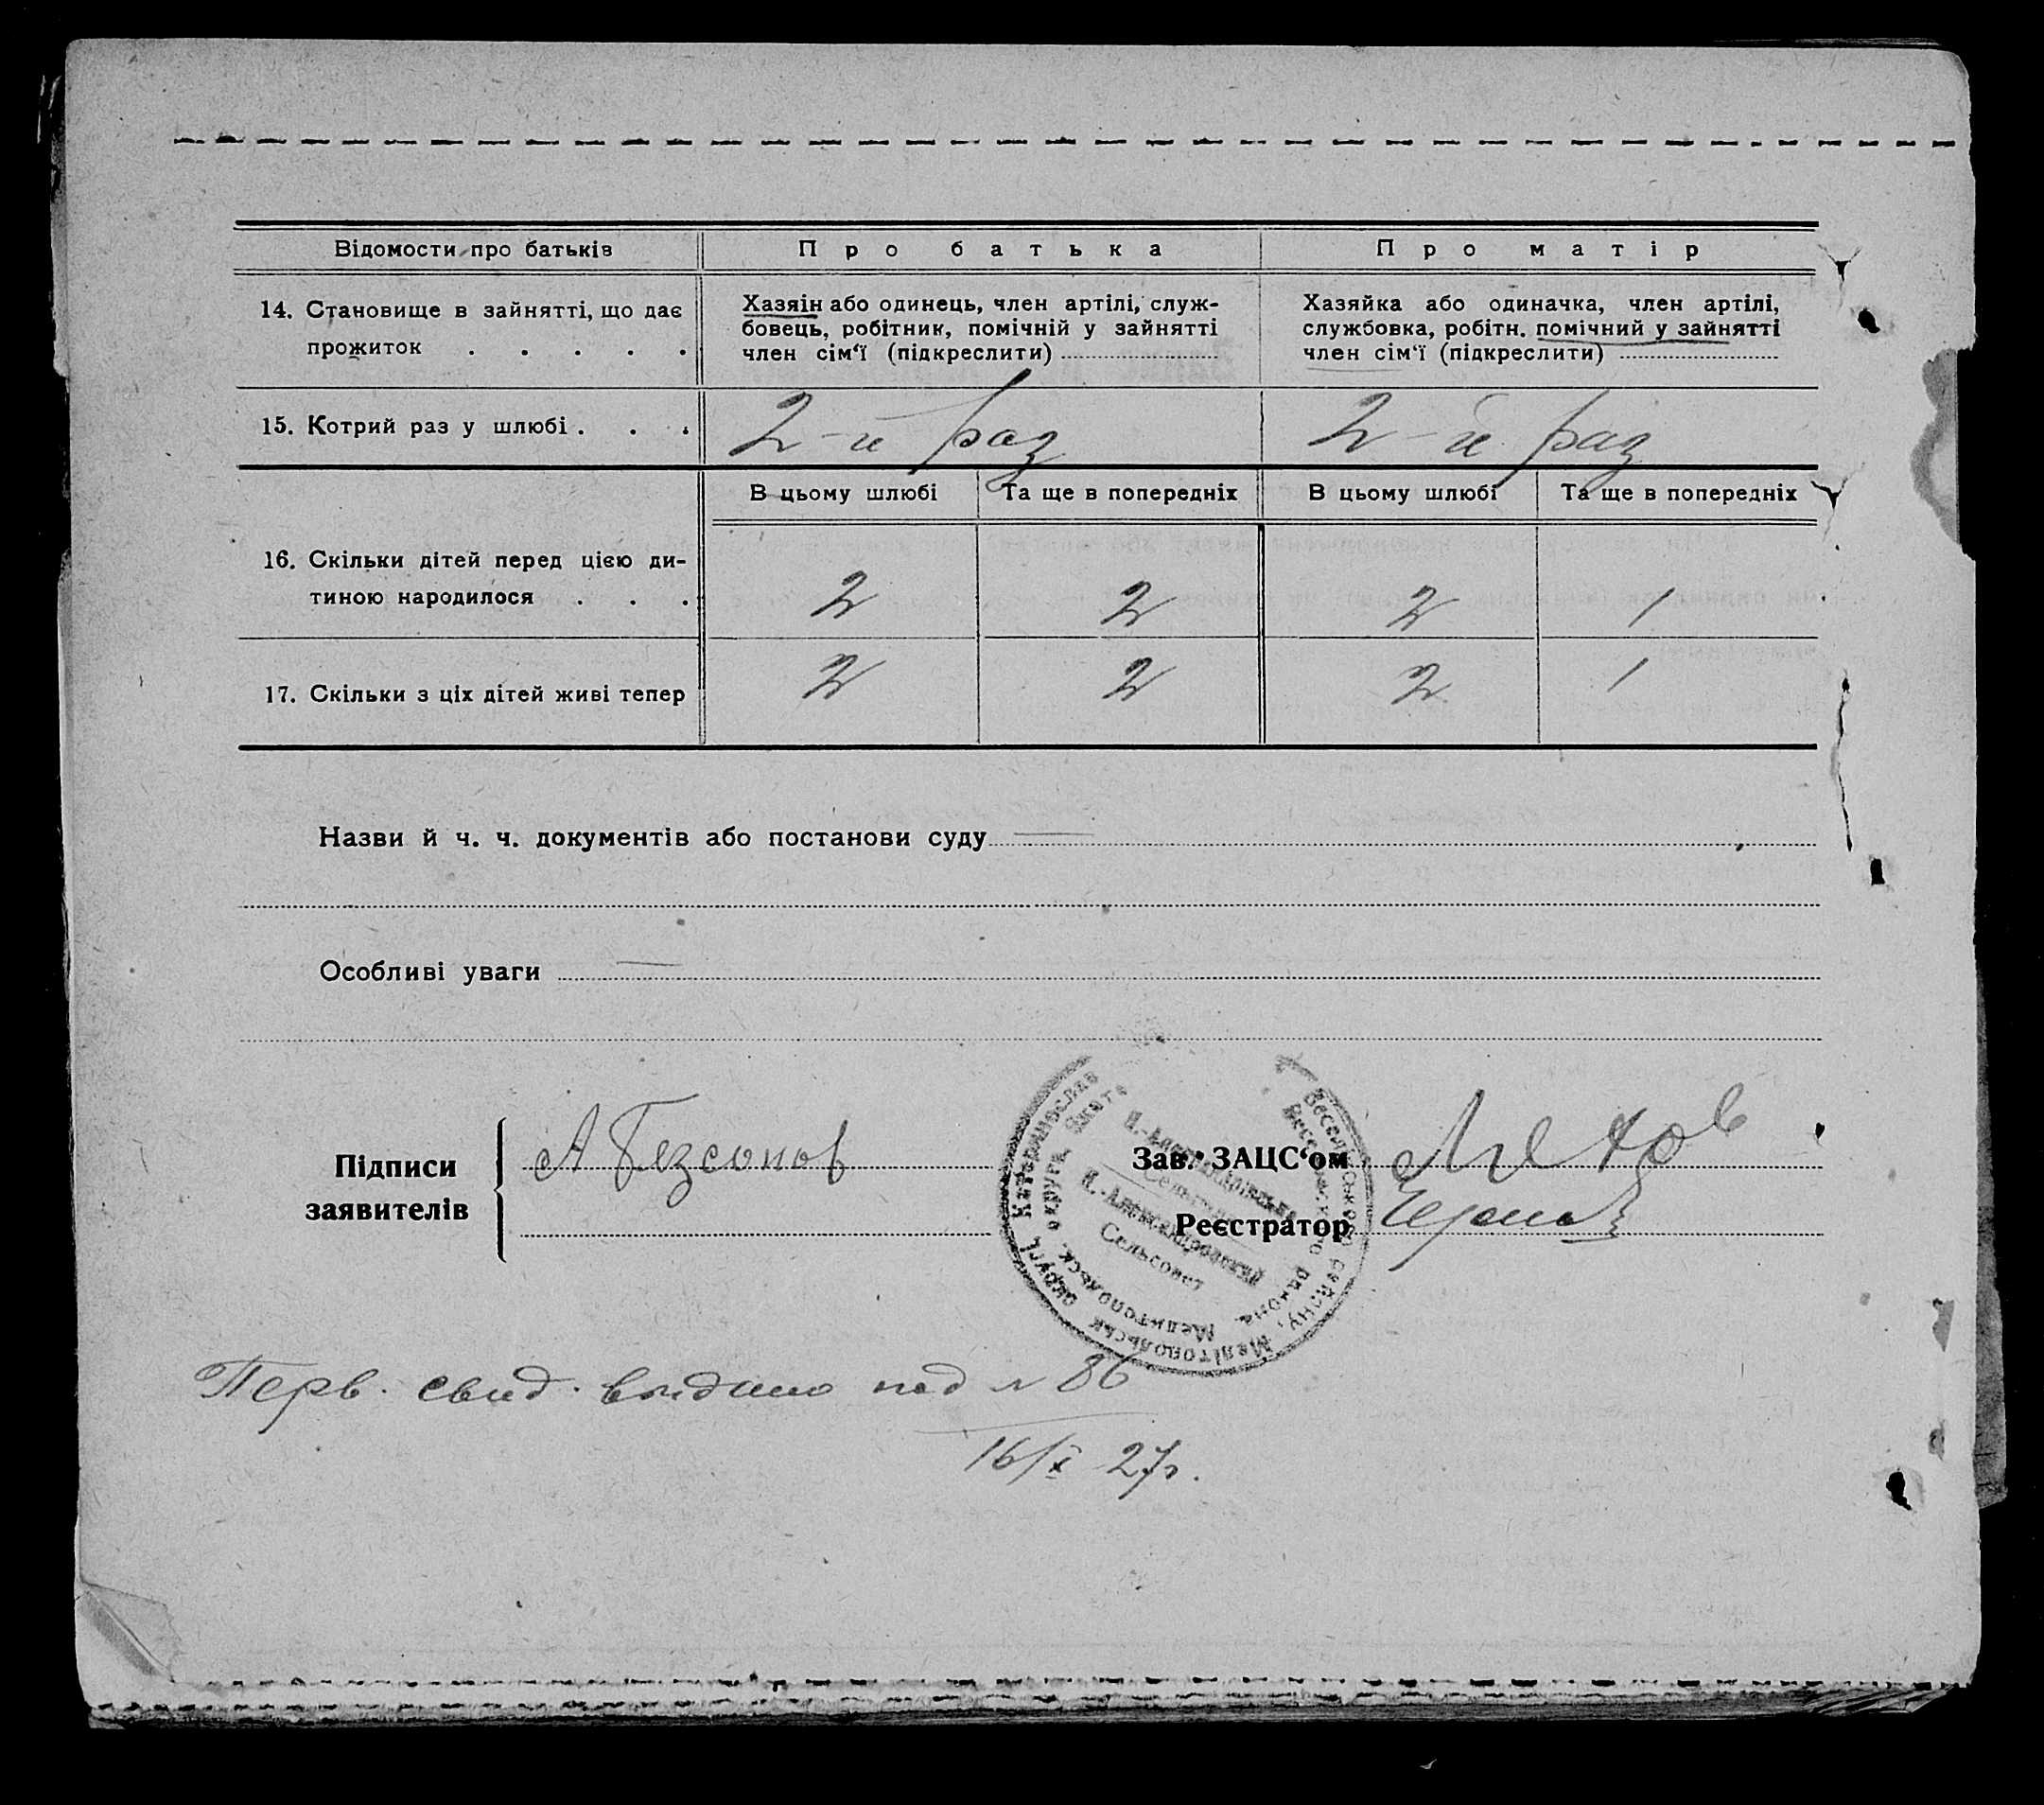 Відомости про батьків
Про батька
Про матір
14. Становище в зайнятті, що дає
прожиток . . . . .
Хазяін або одинець, член артілі, служ-
бовець, робітник, помічній у зайнятті
член сім‘ї (підкреслити)
Хазяйка або одиначка, член артілі,
службовка, робітн. помічний у зайнятті
член сім‘ї (підкреслити)
15. Котрий раз у шлюбі . . .
2-й раз
2-й раз
В цьому шлюбі
Та ще в попередніх
В цьому шлюбі
Та ще в попередніх
16. Скільки дітей перед цією ди-
тиною народилося . . .
2
2
2
1
17. Скільки з ціх дітей живі тепер
2
2
2
1
Назви й ч. ч. документів або постанови суду
Особливі уваги
Підписи
заявителів
Зав. ЗАЦС‘ом
Реєстратор
Сельсовет
Мелитопольск. округа
Перв. свид. видано под № 86
16/X 27г.